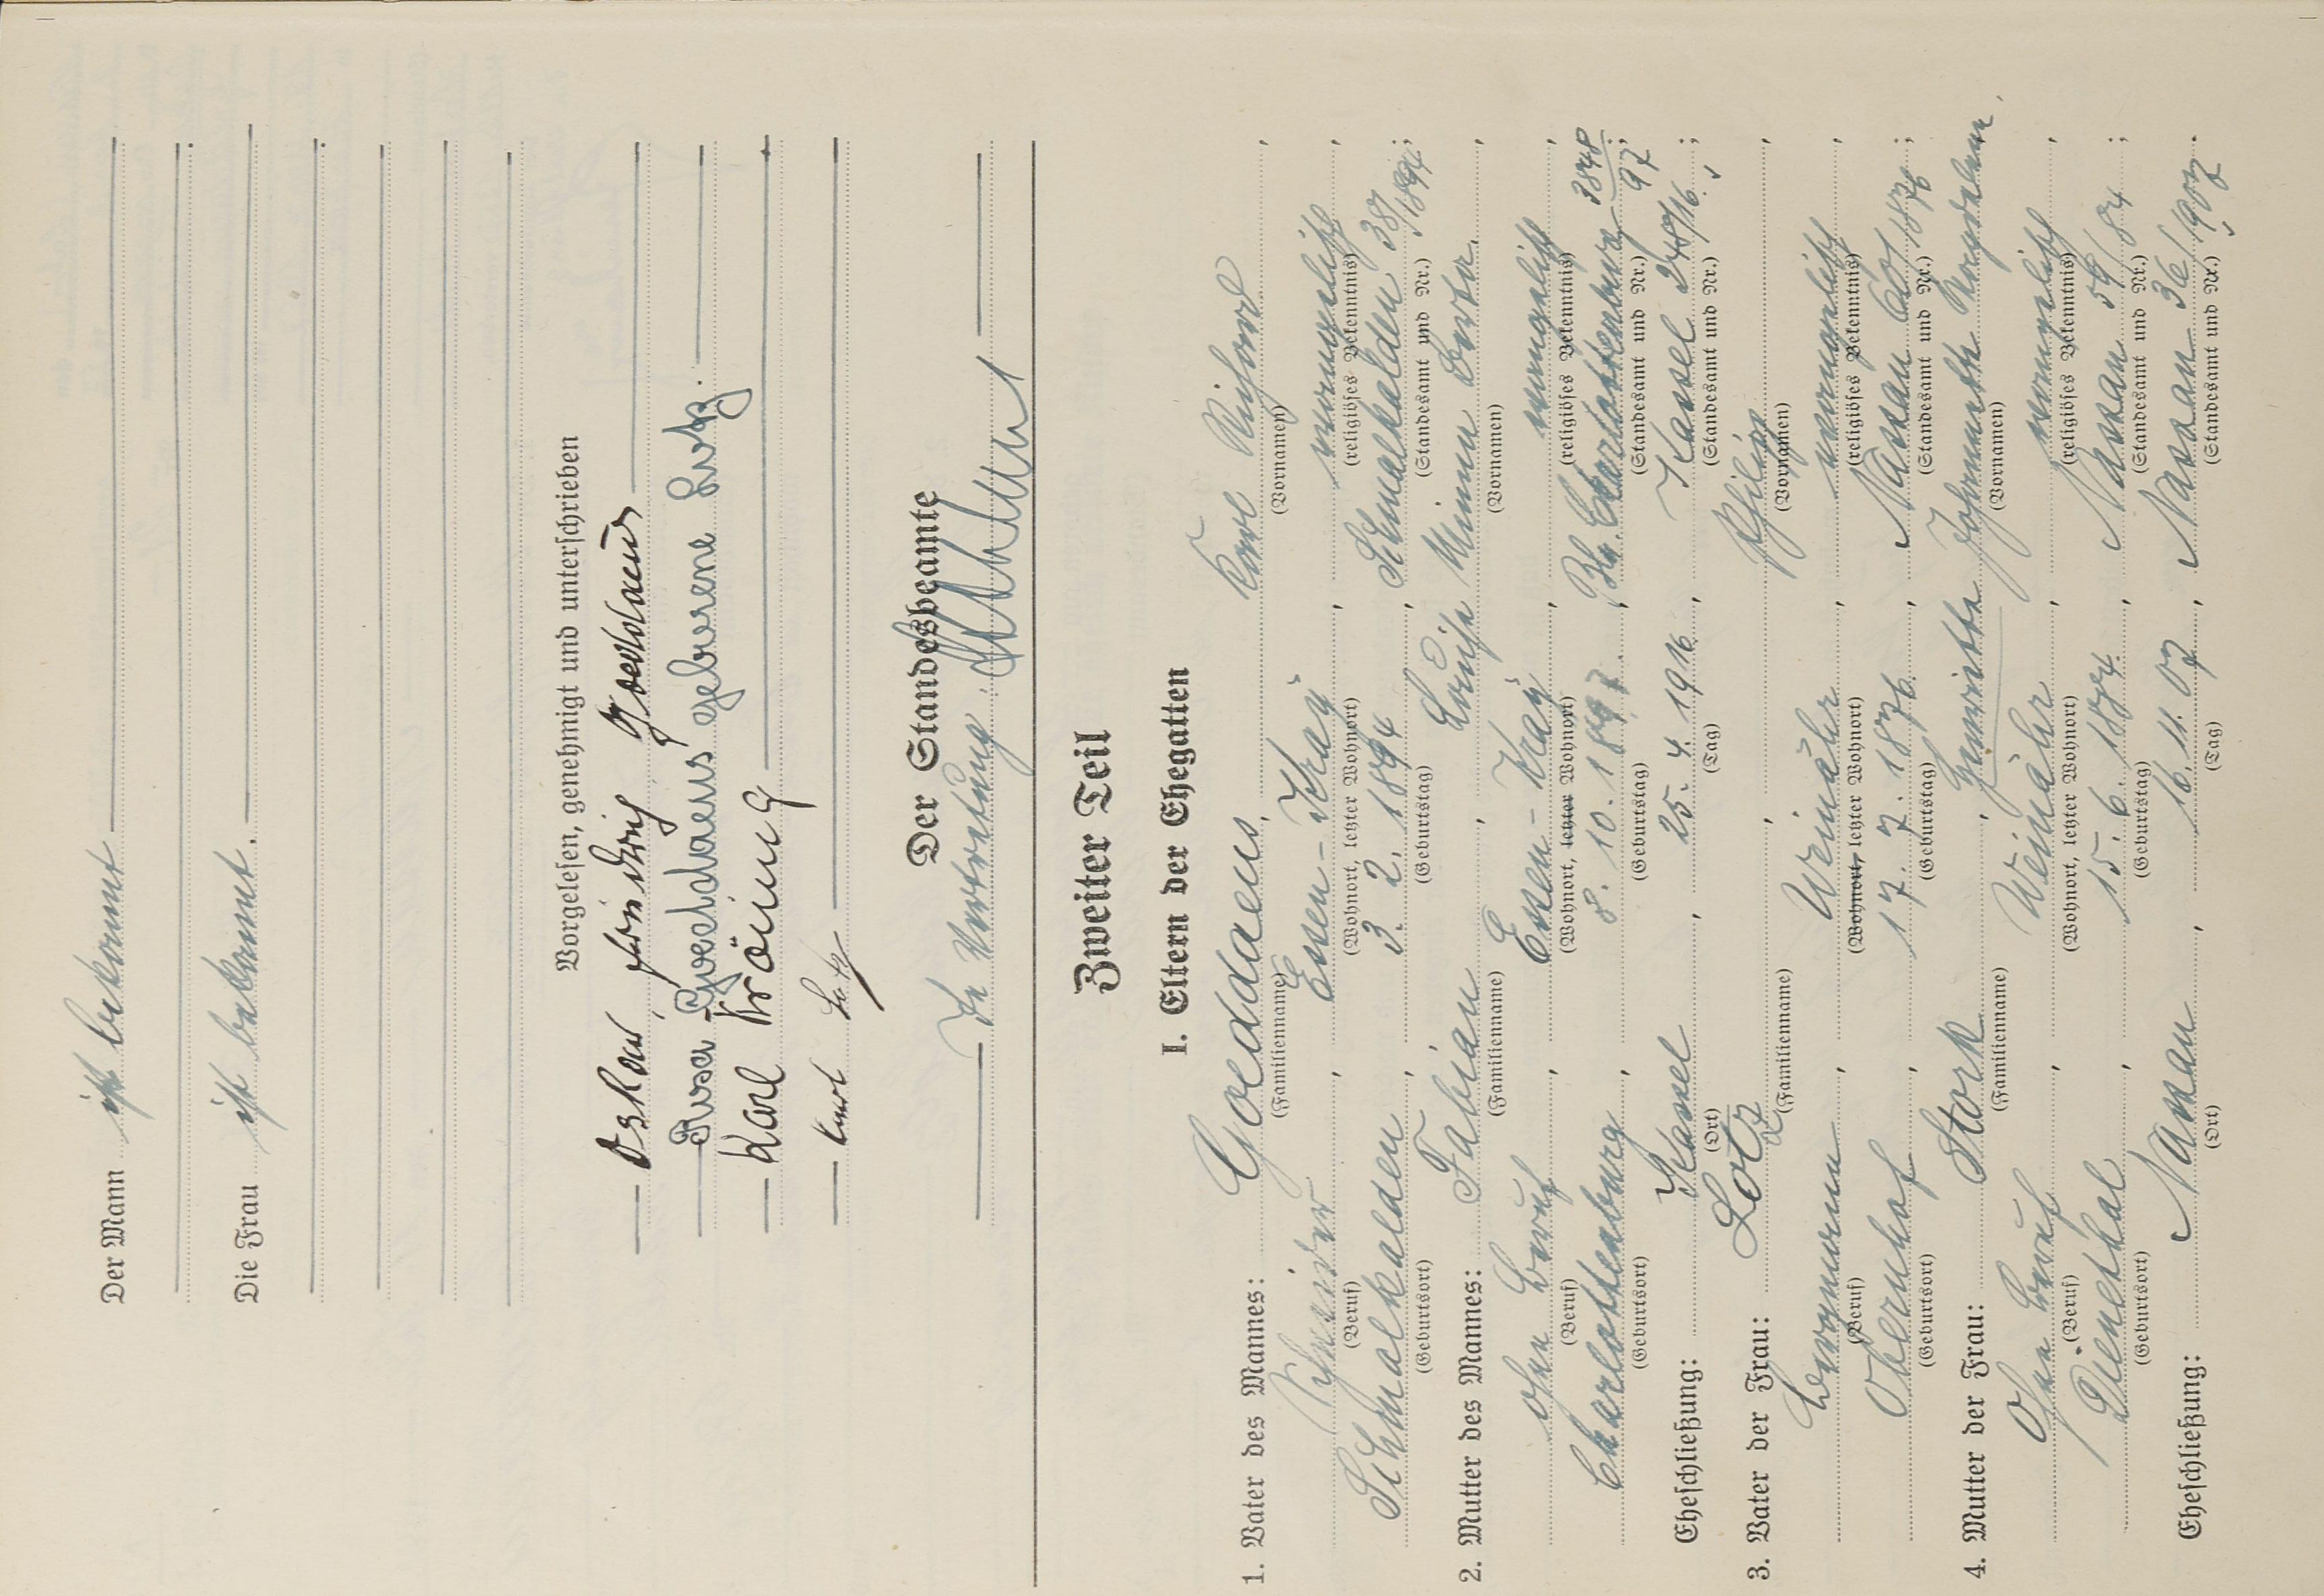 Der Mann ist bekannt
Die Frau ist bekannt.
Vorgelesen, genehmigt und unterschrieben
Oskar Heinrich Goeddaeus
Rosa Goeddaeus geborene Lotz.
Karl Kröning
Kurt Lotz
Der Standesbeamte
In Vertretung
Zweiter Teil
I. Eltern der Ehegatten
1. Vater des Mannes: Goeddaeus, Karl Richard,
(Familienname) (Vornamen)
Schneider, Essen-Kray, evangelisch,
(Beruf) (Wohnort, letzter Wohnort) (religiöses Bekenntnis)
Schmalkalden, 3. 2. 1894, Schmalkalden 38/1894;
(Geburtsort) (Geburtstag) (Standesamt und Nr.)
2. Mutter des Mannes: Fabian, Luise Minna Berta,
(Familienname) (Vornamen)
ohne Beruf, Essen-Kray, evangelisch,
(Beruf) (Wohnort, letzter Wohnort) (religiöses Bekenntnis)
Charlottenburg, 8. 10. 1897, Bln. Charlottenburg 3848/97;
(Geburtsort) (Geburtstag) (Standesamt und Nr.)
Eheschließung: Kassel, 25. 4. 1916, Kassel 248/16;
(Ort) (Tag) (Standesamt und Nr.)
3. Vater der Frau: Lotz, Philipp,
(Familienname) (Vornamen)
Bergmann, Weinähr, evangelisch,
(Beruf) (Wohnort, letzter Wohnort) (religiöses Bekenntnis)
Obernhof, 17. 7. 1876, Nassau 60/1876;
(Geburtsort) (Geburtstag) (Standesamt und Nr.)
4. Mutter der Frau: Stork, Henriette Johannette Magdalene,
(Familienname) (Vornamen)
Ohne Beruf, Weinähr, evangelisch,
(Beruf) (Wohnort, letzter Wohnort) (religiöses Bekenntnis)
Dienethal, 15. 6. 1884, Nassau 59/84;
(Geburtsort) (Geburtstag) (Standesamt und Nr.)
Eheschließung: Nassau, 16. 11. 07, Nassau 36/1907.
(Ort) (Tag) (Standesamt und Nr.)